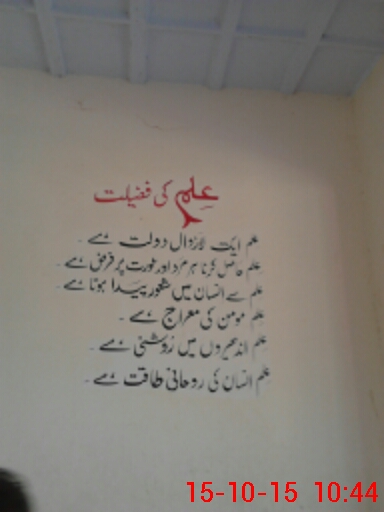 علم کی فضیلت
علم ایک لازوال دولت ہے۔
علم حاصل کرنا ہر مرد اور عورت پر فرض ہے۔
علم سے انسان میں شعور پیدا ہوتا ہے۔
علم مومن کی معراج ہے۔
علم اندھیروں میں روشنی ہے۔
علم انسان کی روحانی طاقت ہے۔
15-10-15 10:44